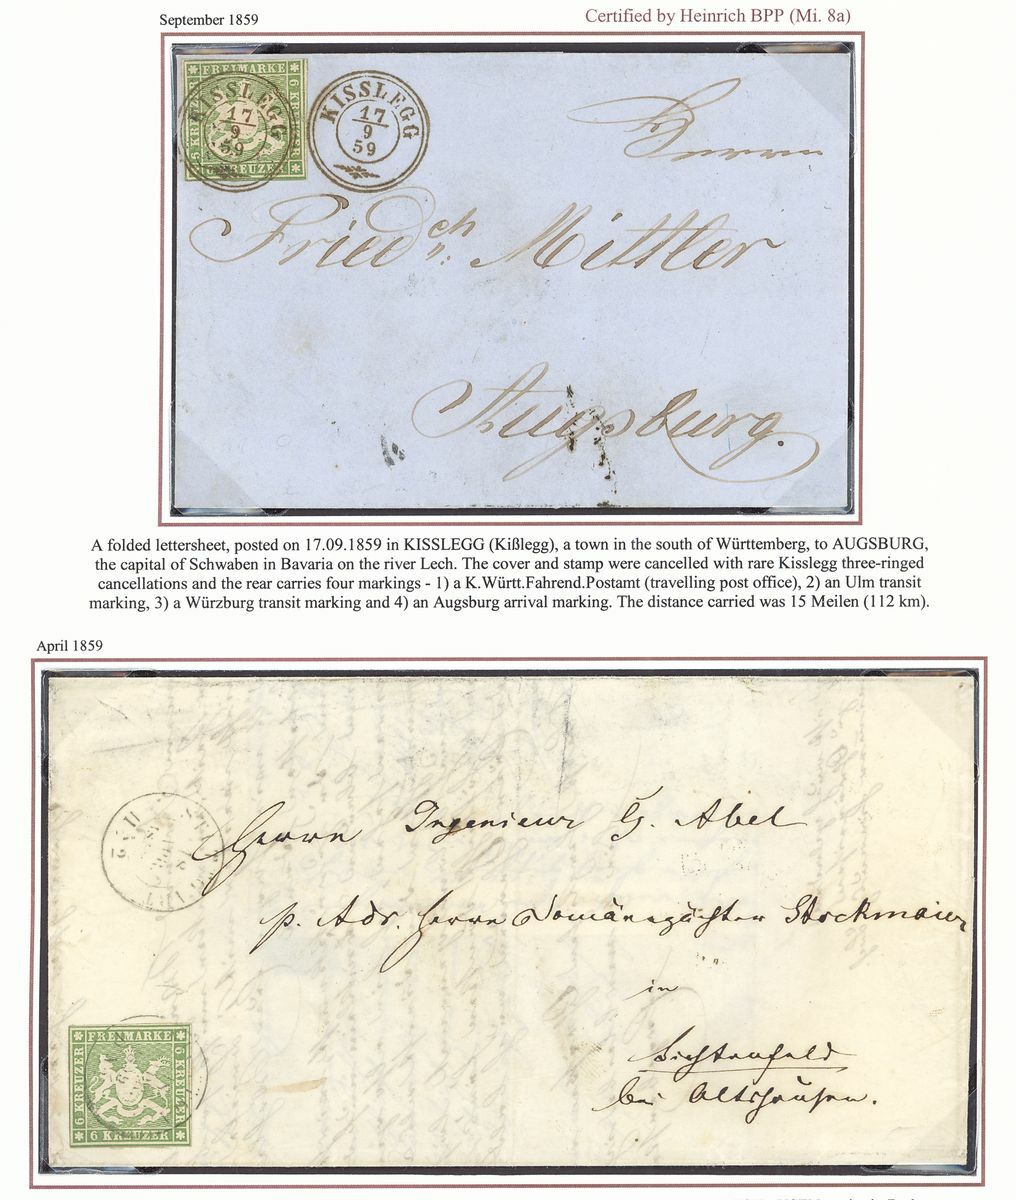 September 1859
Certified by Heinrich BPP (Mi. 8a)
FREIMARKE
6 KREUZER
6 KREUZER
6 KREUZER
KISSLEGG
17
9
59
KISSLEGG
17
9
59
Herrn
Friedch. Mittler
Augsburg.
A folded lettersheet, posted on 17.09.1859 in KISSLEGG (Kißlegg), a town in the south of Württemberg, to AUGSBURG,
the capital of Schwaben in Bavaria on the river Lech. The cover and stamp were cancelled with rare Kisslegg three-ringed
cancellations and the rear carries four markings - 1) a K.Württ.Fahrend.Postamt (travelling post office), 2) an Ulm transit
marking, 3) a Würzburg transit marking and 4) an Augsburg arrival marking. The distance carried was 15 Meilen (112 km).
April 1859
Herrn Ingenieur G. Abel
p. Adr. Herrn Domänepächter Stockmaier
in
Lichtenfeld
bei Altshausen.
FREIMARKE
6 KREUZER
6 KREUZER
6 KREUZER